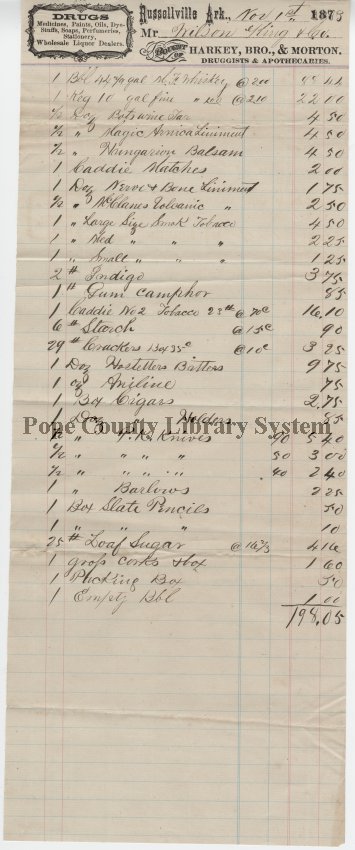 DRUGS
Medicines, Paints, Oils, Dye-
Stuffs, Soaps, Perfumeries,
Stationery,
Wholesale Liquor Dealers.
Russellville Ark., Nov 1st 1878
Mr Wilson King & Co.
BOUGHT OF
HARKEY, BRO., & MORTON,
DRUGGISTS & APOTHECARIES.
1 Bbl 44 gal Whiskey @ 200
1 Keg 10 gal fine " @ 220 22 00
½ Doz Botswine Tar 4 50
½ " Magic Arnica Liniment 4 50
½ " Hungarian Balsam 4 50
1 Caddie Matches 2 00
1 Doz Nerve & Bone Liniment 1 75
½ " McClanes Volcanic " 2 50
1 " Large Size Smok Tobacco 4 50
1 " Med " " " 2 25
1 " Small " " " 1 25
2 # Indigo 3 75
1 # Gum camphor 85
1 Caddie No 2 Tobacco 23 # @ 70c 16 10
6 # Starch @ 15c 90
29 # Crackers Box 35c @ 10c 3 25
1 Doz Hostetters Bitters 9 75
1 oz Aniline 75
1 Box Cigars 2.75
1 Doz Holders 85
Pope County Library System
½ " I.K. Knives 90 5 40
½ " " " " 50 3 00
½ " " " " 40 2 40
1 " Barlows 2 25
1 Box Slate Pencils 50
1 " " " 10
25 # Loaf Sugar @ 16⅔ 4 16
1 gross corks & box 1 60
1 Packing Box 50
1 Empty Bbl 1 00
198.05